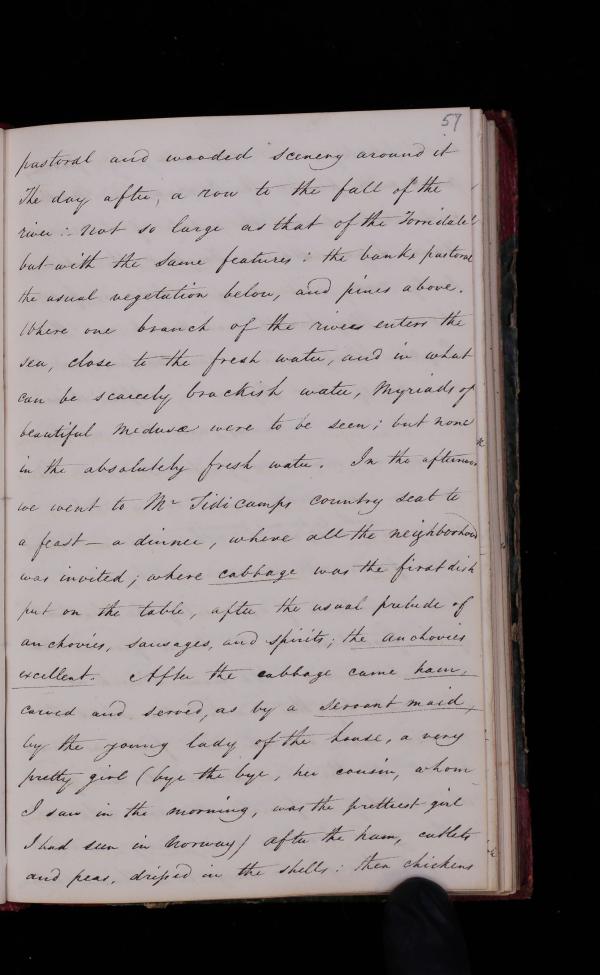 57
pastoral and wooded scenery around it
The day after, a row to the fall of the
river :- not so large as that of the
but with the same features : the banks pastoral
the usual vegetation below, and pines above.
Where one branch of the rivers enters the
sea, close to the fresh water, and in what
can be scarcely brackish water, Myriads of
beautiful Medusæ were to be seen ; but none
in the absolutely fresh water. In the afternoon
we went to Mr Tidicamps country seat to
a feast - a dinner, where all the neighborhood
was invited ; where cabbage was the first dish
put on the table, after the usual prelude of
anchovies, sausages, and spirits ; the anchovies
excellent. After the cabbage came ham,
carved and served, as by a servant maid,
by the young lady of the house, a very
pretty girl (bye the bye, her cousin, whom
I saw in the morning, was the prettiest girl
I had seen in Norway) after the ham, cutlets
and peas, dressed in the shells : then chickens